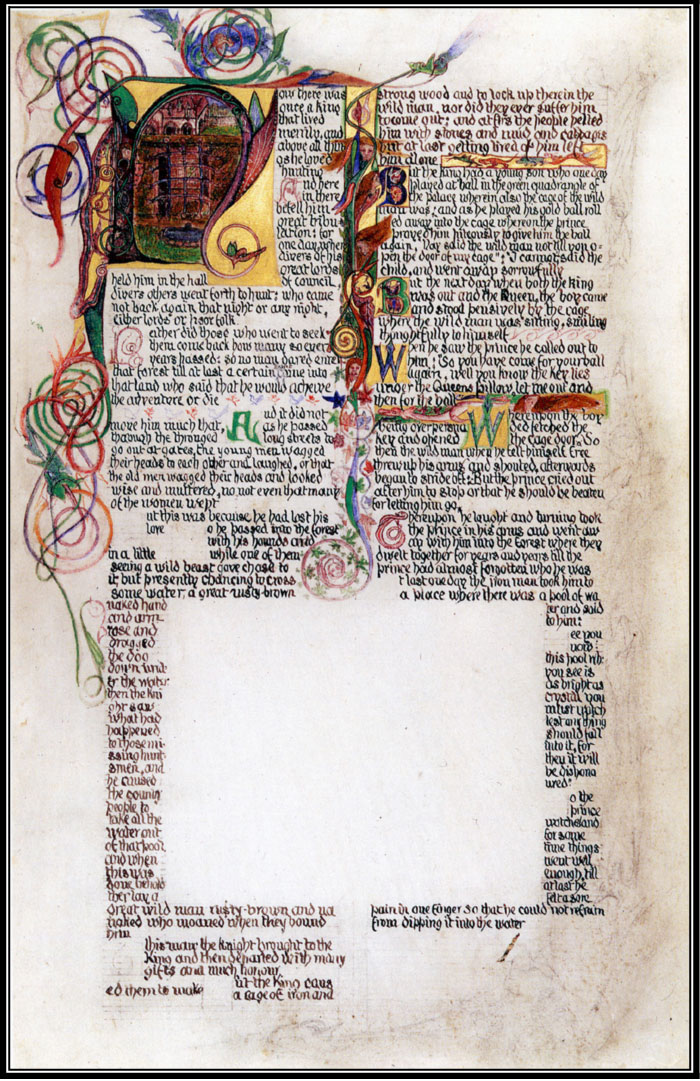 ow there was
once a king
that lived
merrily, and
above all thin
gs he loved
hunting
nd here
in there
befell him
great tribu
lation: for
one day, when
divers of his
great lords
held him in the hall of council,
divers others went forth to hunt: who came
not back again that night or any night,
either lords or poor folk.
either did those who went to seek
them come back how many so ever
years passed: so no man dared enter
that forest till at last a certain came into
that land who said that he would achieve
the adventure or die
nd it did not
move him much that, as he passed
through the thronged long streets to
go out at gates, the young men wagged
their heads to each other and laughed, or that
the old men wagged their heads and looked
wise and muttered, no, not even that many
of the women wept
ut this was because he had lost his
love o he passed into the forest
with his hounds and
in a little while one of them
seeing a wild beast gave chase to
it but presently chancing to cross
some water, a great rusty-brown
naked hand
and arm
rose and
dragged
the dog
down und
er the water
then the kni
ght saw
what had
happened
to those mi
ssing hunt
smen, and
he caused
the country
people to
take all the
water out
of that pool
and when
this was
done behold
ther lay a
great wild man rusty-brown and na
naked who moaned when they bound
him
this man the knight brought to the
King and then departed with many
gifts and much honour
ut the King caus
ed them to make a cage of iron and
strong wood and to lock up therein the
wild man, nor did they ever suffer him
to come out: and at first the people pelted
him with stones and mud and cabbages
but at last getting tired of him left
him alone
But the King had a young son who one day
played at ball in the green quadrangle of
the palace wherein also the cage of the wild
man was; and as he played his gold ball roll
ed away into the cage whereon the prince
prayed him hitously to give him the ball
again, Nay said the wild man not till you o-
pen the door of my cage": "I cannot, said the
child, and went away sorrowfully
But the next day when both the king
was out and the Queen, the boy came
and stood pensively by the cage
where the wild man was sitting, smiling
thoughtfully to himself
When he saw the prince he called out to
him: So you have come for your ball
again, well you know the key lies
under the Queens pillow, let me out and
then for the ball
Whereupon the boy
being overpersua ded fetched the
key and opened the cage door. So
then the wild man when he felt himself free
threw up his arms and shouted, afterwards
began to stride off: But the prince cried out
after him to stop or that he should be beaten
for letting him go,
Thereupon he laught and turning took
the Prince in his arms and went aw
ay with him into the forest where they
dwelt together for years and years till the
prince had almost forgotten who he was
t last one day the iron man took him to
a place where there was a pool of wa
ter and said
to him:
ee you
this pool
you see is
as bright as
crystal you
must watch
lest any thing
should fall
into it, for
they it will
be dishono
ured:
o the
prince
watched and
for some
time things
went well
enough, till
at last he
felt a sore
pain in one finger so that he could not refrain
from dipping it into the water